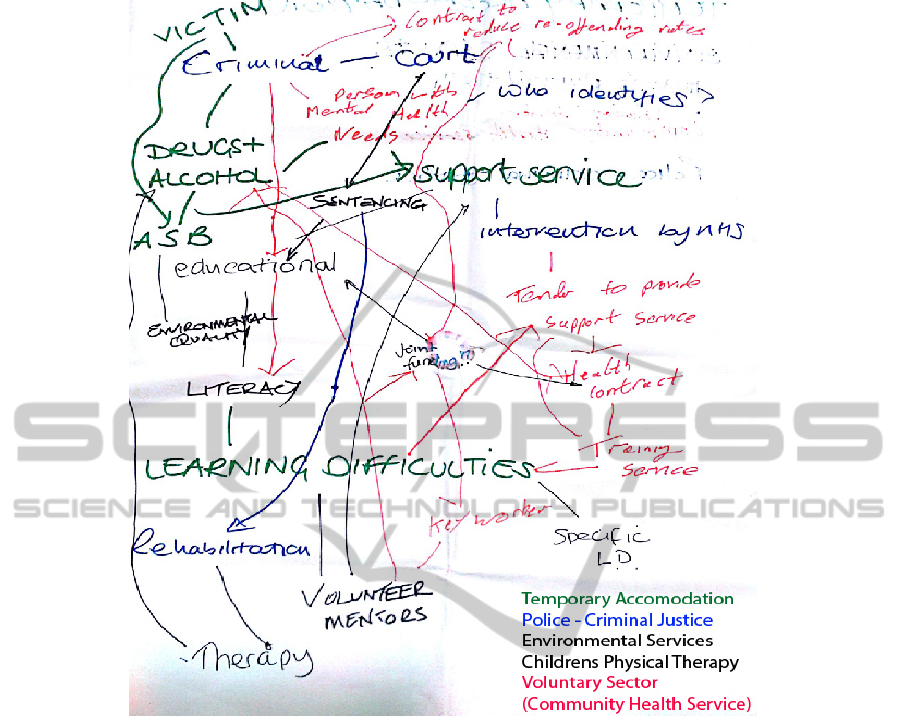 VICTIM
Contract to
reduce re-offending rates
Criminal — Court
Person with
Mental Health
Needs
Who identifies?
DRUGS+
ALCOHOL
Support service
SENTENCING
ASB
intervention by NHS
educational
Tender to provide
support service
ENVIRONMENTAL
QUALITY
Joint
funding
Health
Contract
LITERACY
SCITEPRESS
LEARNING DIFFICULTIES
Training
Service
SCIENCE AND TECHNOLOGY PUBLICATIONS
Key worker
SPECIFIC
L.D.
Rehabilitation
VOLUNTEER
MENTORS
Therapy
Temporary Accomodation
Police - Criminal Justice
Environmental Services
Childrens Physical Therapy
Voluntary Sector
(Community Health Service)